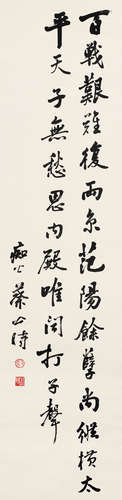 百戰艱難復兩京范陽餘孽尚縱橫太
平天子無愁思內殿唯聞打子聲
癡公蔡公時